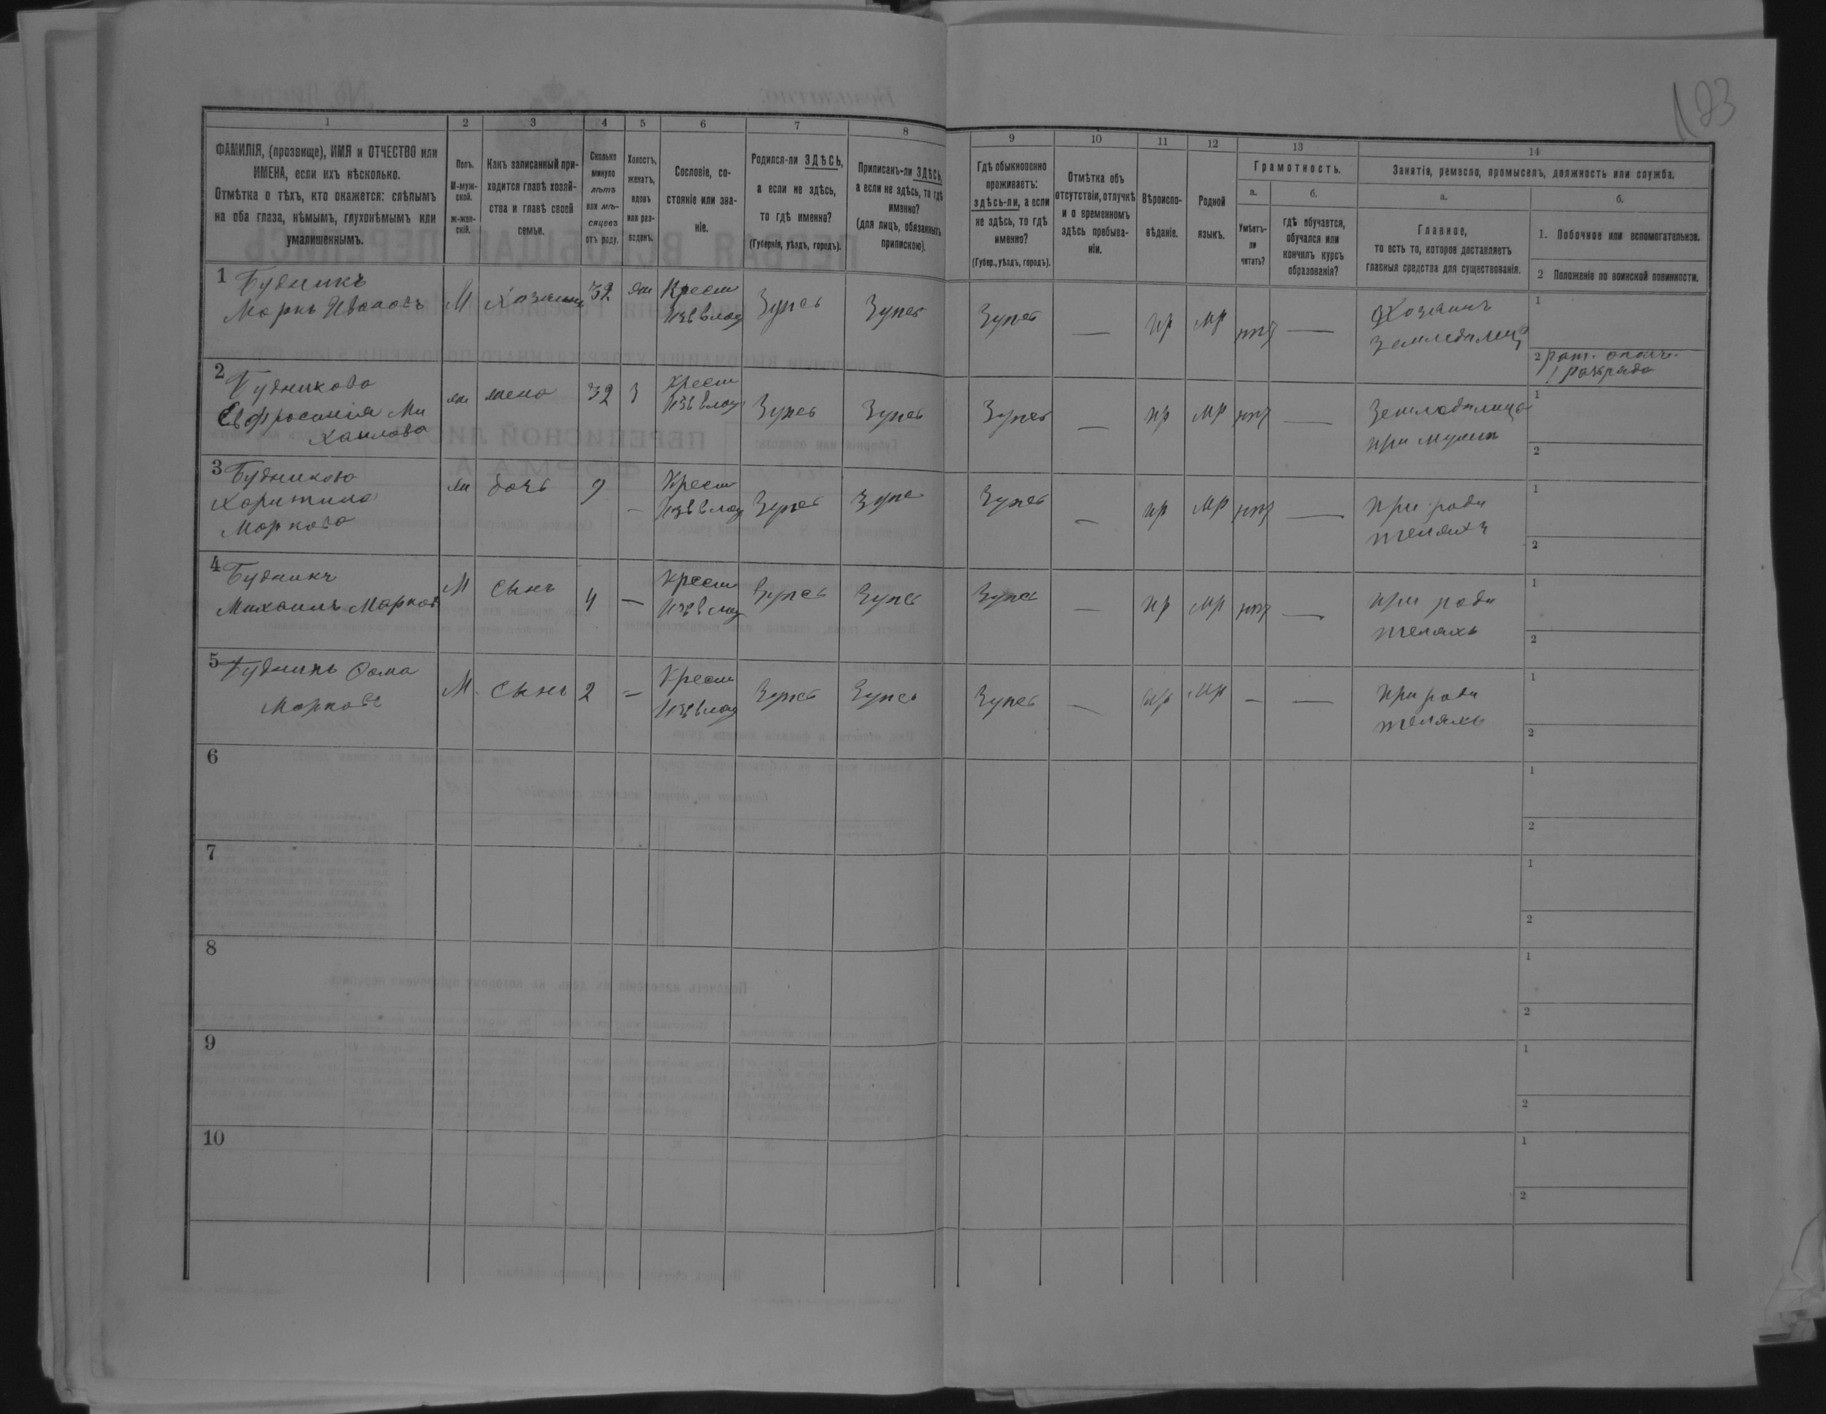 183
1 2 3 4 5 6 7 8 9 10 11 12 13 14
ФАМИЛІЯ, (прозвище), ИМЯ и ОТЧЕСТВО или
ИМЕНА, если ихъ нѣсколько.
Отмѣтка о тѣхъ, кто окажется: слѣпымъ
на оба глаза, нѣмымъ, глухонѣмымъ или
умалишеннымъ.
Полъ.
М-муж-
ской.
ж-жен-
скій.
Какъ записанный при-
ходится главѣ хозяй-
ства и главѣ своей
семьи.
Сколько
минуло
лѣтъ
или мѣ-
сяцевъ
отъ роду.
Холостъ,
женатъ,
вдовъ
или раз-
веденъ.
Сословіе, со-
стояніе или зва-
ніе.
Родился-ли ЗДѢСЬ,
а если не здѣсь,
то гдѣ именно?
(Губернія, уѣздъ, городъ).
Приписанъ-ли ЗДѢСЬ,
а если не здѣсь, то гдѣ
именно?
(для лицъ, обязанныхъ
припискою).
Гдѣ обыкновенно
проживаетъ:
здѣсь-ли, а если
не здѣсь, то гдѣ
именно?
(Губер., уѣздъ, городъ).
Отмѣтка объ
отсутствіи, отлучкѣ
и о временномъ
здѣсь пребыва-
ніи.
Вѣроиспо-
вѣданіе.
Родной
языкъ.
Грамотность.
а.
Умѣетъ-
ли
читать?
б.
гдѣ обучается,
обучался или
кончилъ курсъ
образованія?
Занятія, ремесло, промыселъ, должность или служба.
а.
Главное,
то есть то, которое доставляетъ
главныя средства для существованія.
б.
1. Побочное или вспомогательное.
2 Положеніе по воинской повинности.
1 Будникъ
Марко Ивановъ
М Хозяинъ 32 жен Крест
изъ влад
Зупев Зупев Зупев — пр мр нтъ —
Хозяинъ
Земледѣлец
1
2 рат. ополч.
1 разряда
2 Будникова
Евфросинія Ми
хаилова
жен жена 32 З Крест
изъ влад
Зупев Зупев Зупев — пр мр нтъ —
Земледѣлица
при мужѣ
1
2
3 Будникова
Харитина
Маркова
жен дочь 9 — Крест
изъ влад
Зупев Зупев Зупев — пр мр нтъ —
При роди
теляхъ
1
2
4 Будникъ
Михаилъ Марков
М сынъ 4 — Крест
изъ влад
Зупев Зупев Зупев — пр мр нтъ —
при роди
теляхъ
1
2
5 Будникъ Фома
Марковъ
М сынъ 2 — Крест
изъ влад
Зупев Зупев Зупев — пр мр — —
При роди
теляхъ
1
2
6
1
2
7
1
2
8
1
2
9
1
2
10
1
2